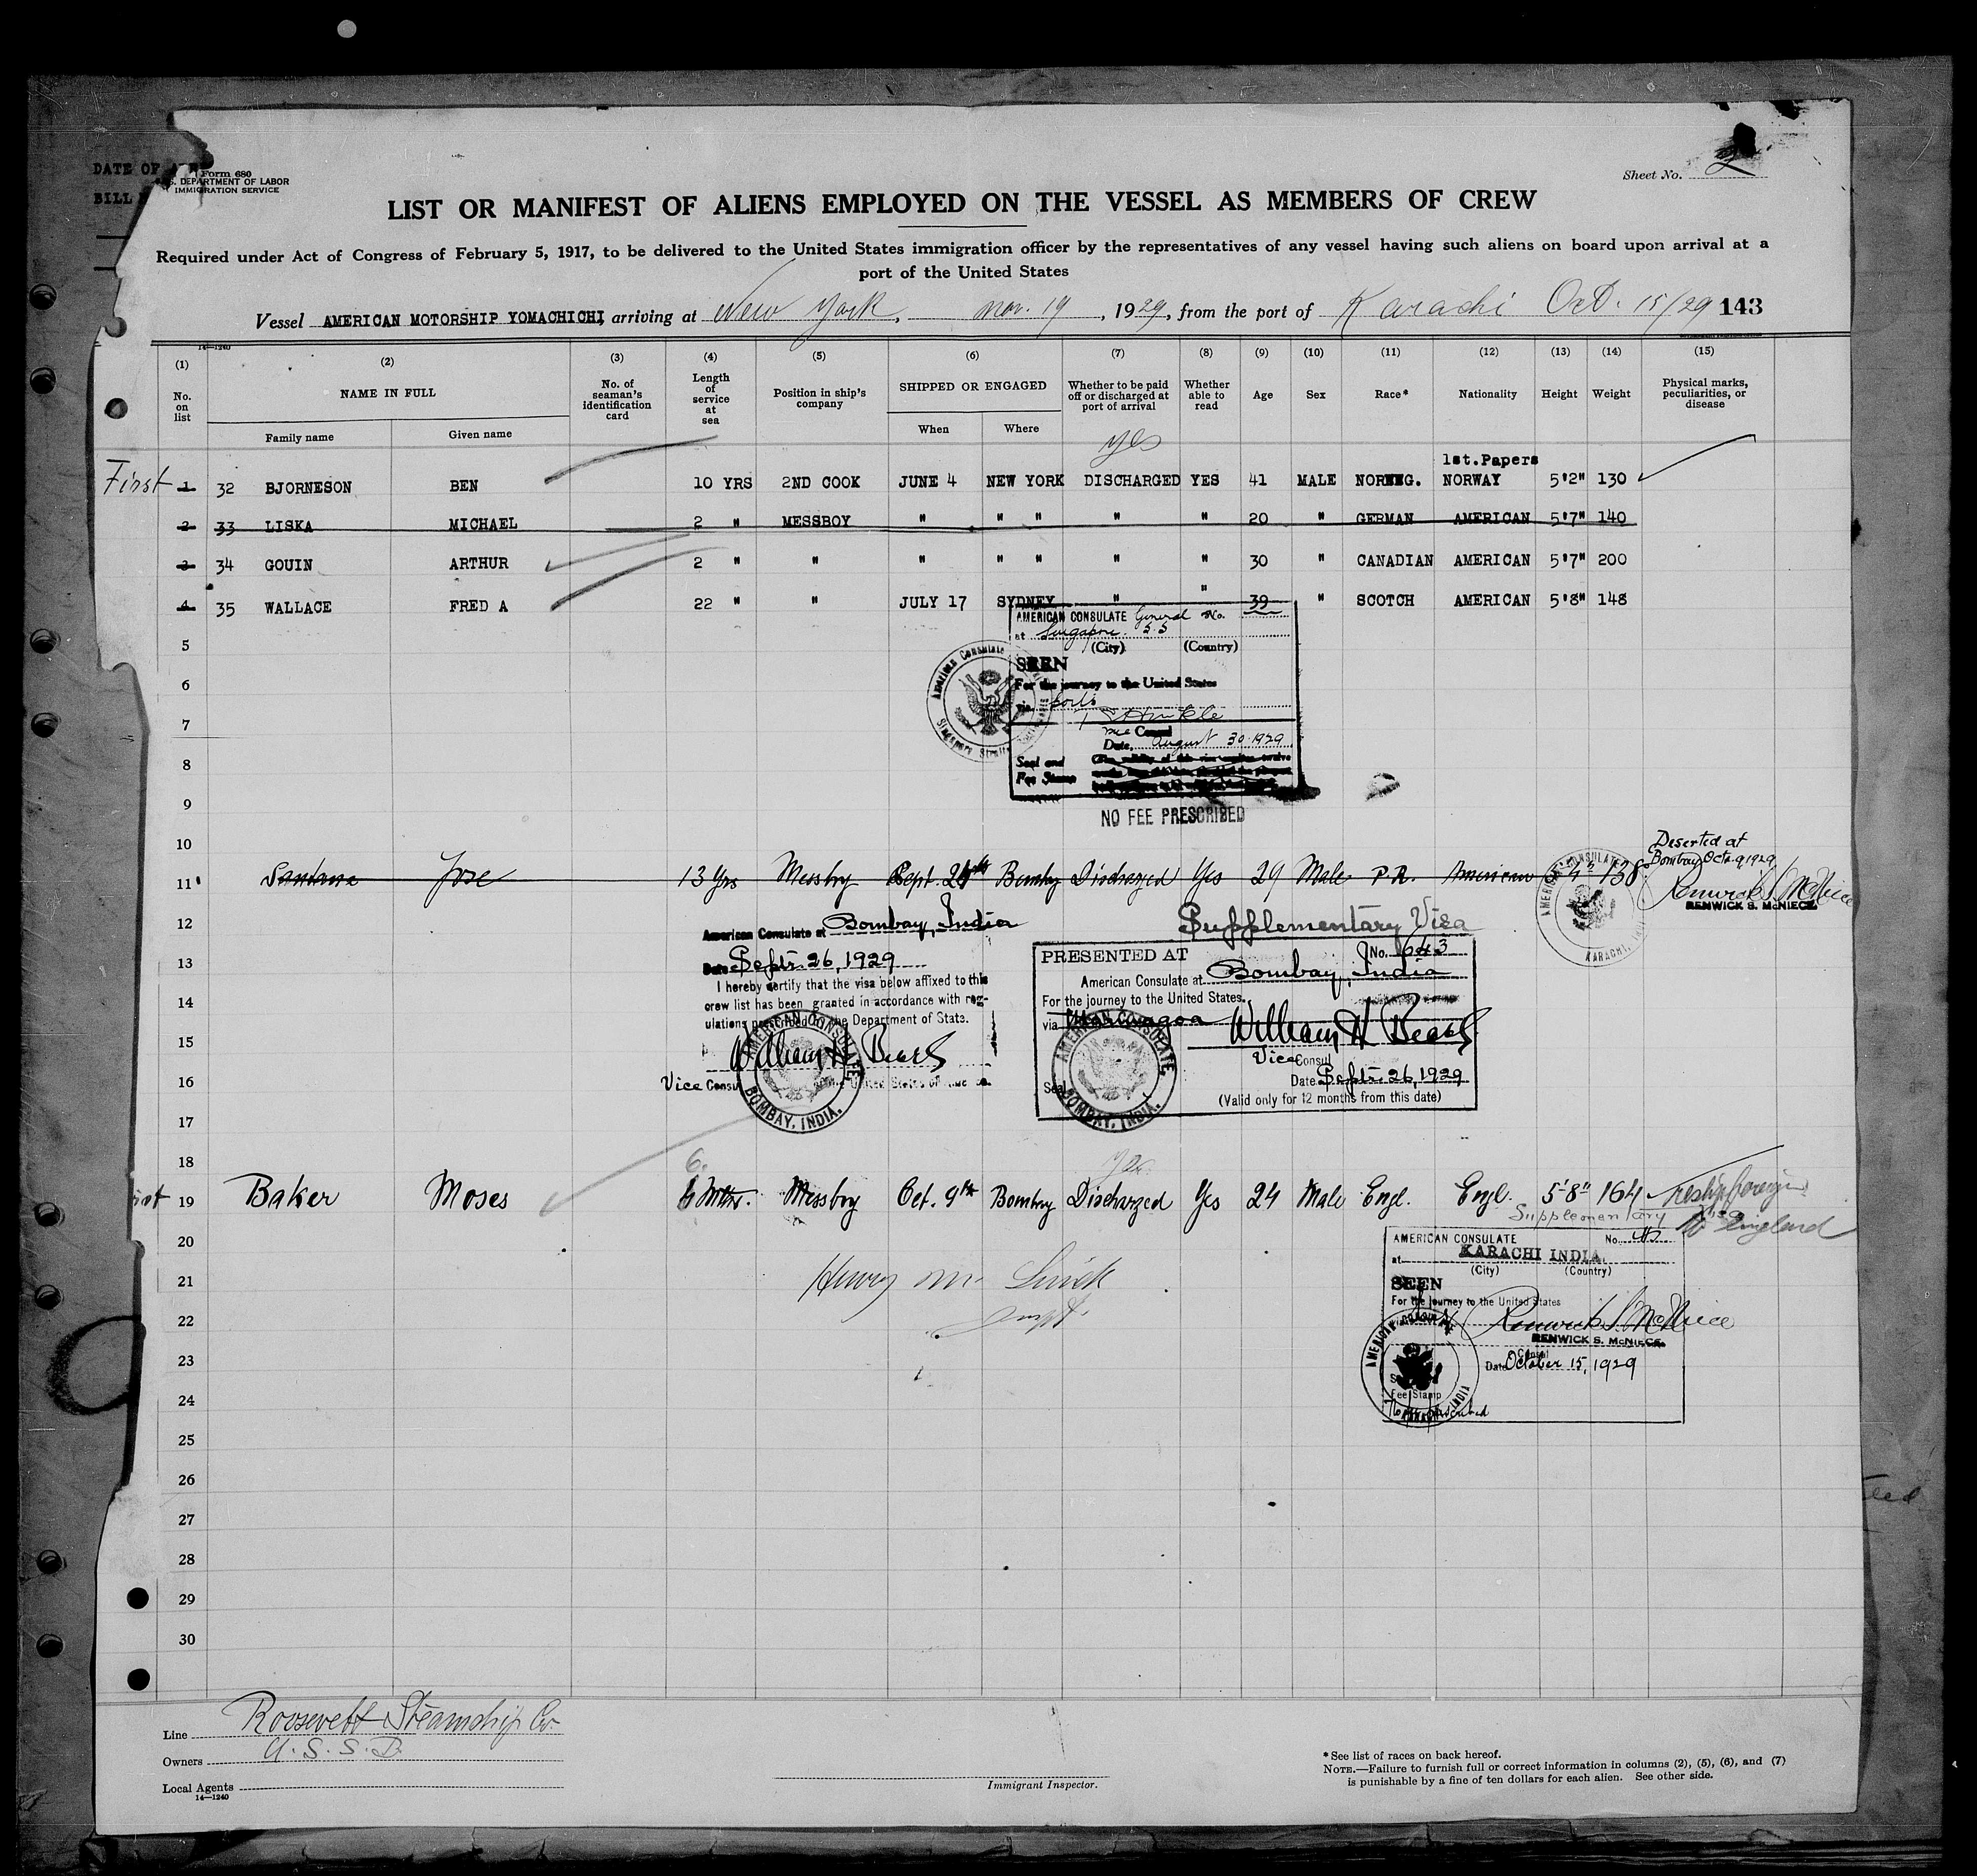 DATE OF
BILL
Form 680
U.S. DEPARTMENT OF LABOR
IMMIGRATION SERVICE
Sheet No. 2
LIST OR MANIFEST OF ALIENS EMPLOYED ON THE VESSEL AS MEMBERS OF CREW
Required under Act of Congress of February 5, 1917, to be delivered to the United States immigration officer by the representatives of any vessel having such aliens on board upon arrival at a
port of the United States
Vessel AMERICAN MOTORSHIP YOMACHICHI, arriving at New York, Nov. 19, 1929, from the port of Karachi Oct. 15/29 143
14—1240
(1) (2) (3) (4) (5) (6) (7) (8) (9) (10) (11) (12) (13) (14) (15)
No. on list NAME IN FULL No. of seaman's identification card Length of service at sea Position in ship's company SHIPPED OR ENGAGED Whether to be paid off or discharged at port of arrival Whether able to read Age Sex Race* Nationality Height Weight Physical marks, peculiarities, or disease
Family name Given name When Where
yes
1st.Papers
First 1 32 BJORNESON BEN 10 YRS 2ND COOK JUNE 4 NEW YORK DISCHARGED YES 41 MALE NORWEG. NORWAY 5'2" 130
2 33 LISKA MICHAEL 2 " MESSBOY " " " " " 20 " GERMAN AMERICAN 5'7" 140
3 34 GOUIN ARTHUR 2 " " " " " " " 30 " CANADIAN AMERICAN 5'7" 200
4 35 WALLACE FRED A 22 " " JULY 17 SYDNEY " " 39 " SCOTCH AMERICAN 5'8" 148
AMERICAN CONSULATE General No.
at Singapore. S S
(City) (Country)
SEEN
For the journey to the United States
via
Vice Consul
Date, August 30 1929
Seal and
Fee Stamp
American Consulate
Singapore Straits
NO FEE PRESCRIBED
5
6
7
8
9
10
Deserted at
Bombay Oct. 9 1929
11 Santana Jose 13 Yrs Messboy Sept. Bombay Discharged Yes 29 Male P.R. American 5'4" 138
Renwick S. McNiece
RENWICK S. McNIECE.
AMERICAN CONSULATE
KARACHI, INDIA
12
13
14
15
16
17
18
American Consulate at Bombay, India
Date Sept. 26, 1929
I hereby certify that the visa below affixed to this
crew list has been granted in accordance with reg-
ulations prescribed by the Department of State.
William H. Beach
Vice Consul of the United States of America.
AMERICAN CONSULATE,
BOMBAY, INDIA.
Supplementary Visa
PRESENTED AT No. 643
American Consulate at Bombay, India
For the journey to the United States.
via Marmagoa
William H. Beach
Vice Consul
Date Sept. 26, 1929
Seal
(Valid only for 12 months from this date)
AMERICAN CONSULATE,
BOMBAY, INDIA.
6.
yes
19 Baker Moses 6 Mths. Messboy Oct. 9th Bombay Discharged Yes 24 Male Engl. Engl. 5'8" 164 Reship foreign
to England
Supplementary Visa
AMERICAN CONSULATE No.
at KARACHI INDIA.
(City) (Country)
SEEN
For the journey to the United States
Renwick S. McNiece
RENWICK S. McNIECE.
Consul
Date October 15, 1929
Fee Stamp
No fee prescribed
20
21
22
23
24
25
26
27
28
29
30
Line Roosevelt Steamship Co.
Owners U.S.S.B.
Local Agents
14—1240
Immigrant Inspector.
*See list of races on back hereof.
NOTE.—Failure to furnish full or correct information in columns (2), (5), (6), and (7)
is punishable by a fine of ten dollars for each alien. See other side.